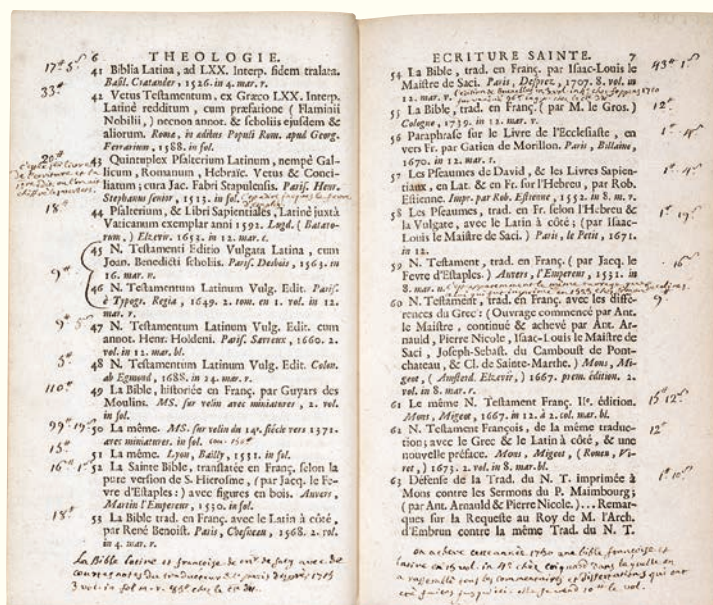 6 THEOLOGIE.
17# 5s 41 Biblia Latina, ad LXX. Interp. fidem tralata.
Basil. Cratander, 1526. in 4. mar. r.
33# 42 Vetus Testamentum, ex Græco LXX. Interp.
Latinè redditum, cum præfatione (Flaminii
Nobilii,) necnon annot. & scholiis ejusdem &
aliorum. Romæ, in ædibus Populi Rom. apud Georg.
Ferrarium, 1588. in fol.
20# 43 Quintuplex Psalterium Latinum, nempè Gal-
licum, Romanum, Hebraïc. Vetus & Conci-
liatum; cura Jac. Fabri Stapulensis. Paris. Henr.
Stephanus senior, 1513. in fol.
18# 44 Psalterium, & Libri Sapientiales, Latinè juxtà
Vaticanum exemplar anni 1592. Lugd. (Batavo-
rum,) Elzevir. 1653. in 12. mar. c.
45 N. Testamenti Editio Vulgata Latina, cum
Joan. Benedicti scholiis. Paris. Desbois, 1563. in
16. mar. n.
9# 46 N. Testamentum Latinum Vulg. Edit. Paris.
è Typogr. Regia, 1649. 2. tom. en 1. vol. in 12.
mar. r.
9# 5s 47 N. Testamentum Latinum Vulg. Edit. cum
annot. Henr. Holdeni. Paris. Savreux, 1660. 2.
vol. in 12. mar. bl.
5# 48 N. Testamentum Latinum Vulg. Edit. Colon.
ab Egmond, 1688. in 24. mar. r.
110# 49 La Bible, historiée en Franç. par Guyars des
Moulins. MS. sur velin avec miniatures, 2. vol.
in fol.
99# 19s 50 La même. MS. sur velin du 14e. siécle vers 1372.
avec miniatures. in fol.
15# 51 La même. Lyon, Bailly, 1531. in fol.
16# 1s 52 La Sainte Bible, translatée en Franç. selon la
pure version de S. Hierosme, (par Jacq. le Fe-
vre d'Estaples:) avec figures en bois. Anvers,
Martin l'Empereur, 1530. in fol.
18# 53 La Bible trad. en Franç. avec le Latin à côté,
par René Benoist. Paris, Chesneau, 1568. 2. vol.
in 4. mar. r.
La Bible latine et françoise de mr. de sacy avec de
courtes notes
3 vol. in fol
ECRITURE SAINTE. 7
54 La Bible, trad. en Franç. par Isaac-Louis le
Maistre de Saci. Paris, Desprez, 1707. 8. vol. in
12. mar. v.
55 La Bible, trad. en Franç. (par M. le Gros.) 12#
Cologne, 1739. in 12. mar. v.
56 Paraphrase sur le Livre de l'Ecclesiaste, en
vers Fr. par Gatien de Morillon. Paris, Billaine,
1670. in 12. mar. r.
57 Les Pseaumes de David, & les Livres Sapien-
tiaux, en Lat. & en Fr. sur l'Hebreu, par Rob.
Estienne. Impr. par Rob. Estienne, 1552. in 8. m. v.
58 Les Pseaumes, trad. en Fr. selon l'Hebreu &
la Vulgate, avec le Latin à côté; (par Isaac-
Louis le Maistre de Saci.) Paris, le Petit, 1671.
in 12.
59 N. Testament, trad. en Franç. (par Jacq. le
Fevre d'Estaples.) Anvers, l'Empereur, 1531. in
8. mar. n.
60 N. Testament, trad. en Franç. avec les diffe-
rences du Grec: (Ouvrage commencé par Ant.
le Maistre, continué & achevé par Ant. Ar-
nauld, Pierre Nicole, Isaac-Louis le Maistre de
Saci, Joseph-Sebast. du Camboust de Pont-
chateau, & Cl. de Sainte-Marthe.) Mons, Mi-
geot, (Amsterd. Elzevir,) 1667. prem. édition. 2.
vol. in 8. mar. r.
61 Le même N. Testament Franç. IIe. édition.
Mons, Migeot, 1667. in 12. à 2. col. mar. bl.
62 N. Testament François, de la même traduc- 12#
tion; avec le Grec & le Latin à côté, & une
nouvelle préface. Mons, Migeot, (Rouen, Vi-
ret,) 1673. 2. vol. in 8. mar. bl.
63 Défense de la Trad. du N. T. imprimée à
Mons contre les Sermons du P. Maimbourg;
(par Ant. Arnauld & Pierre Nicole.) ... Remar-
ques sur la Requeste au Roy de M. l'Arch.
d'Embrun contre la même Trad. du N. T.
on acheve cette année 1750 une bible françoise et
latine en 15 vol. in 4º chez coignard dans laquelle on
a rassemblé tous les commentaires et dissertations qui ont
été faites jusqu'ici. elle se vend 10# le vol.